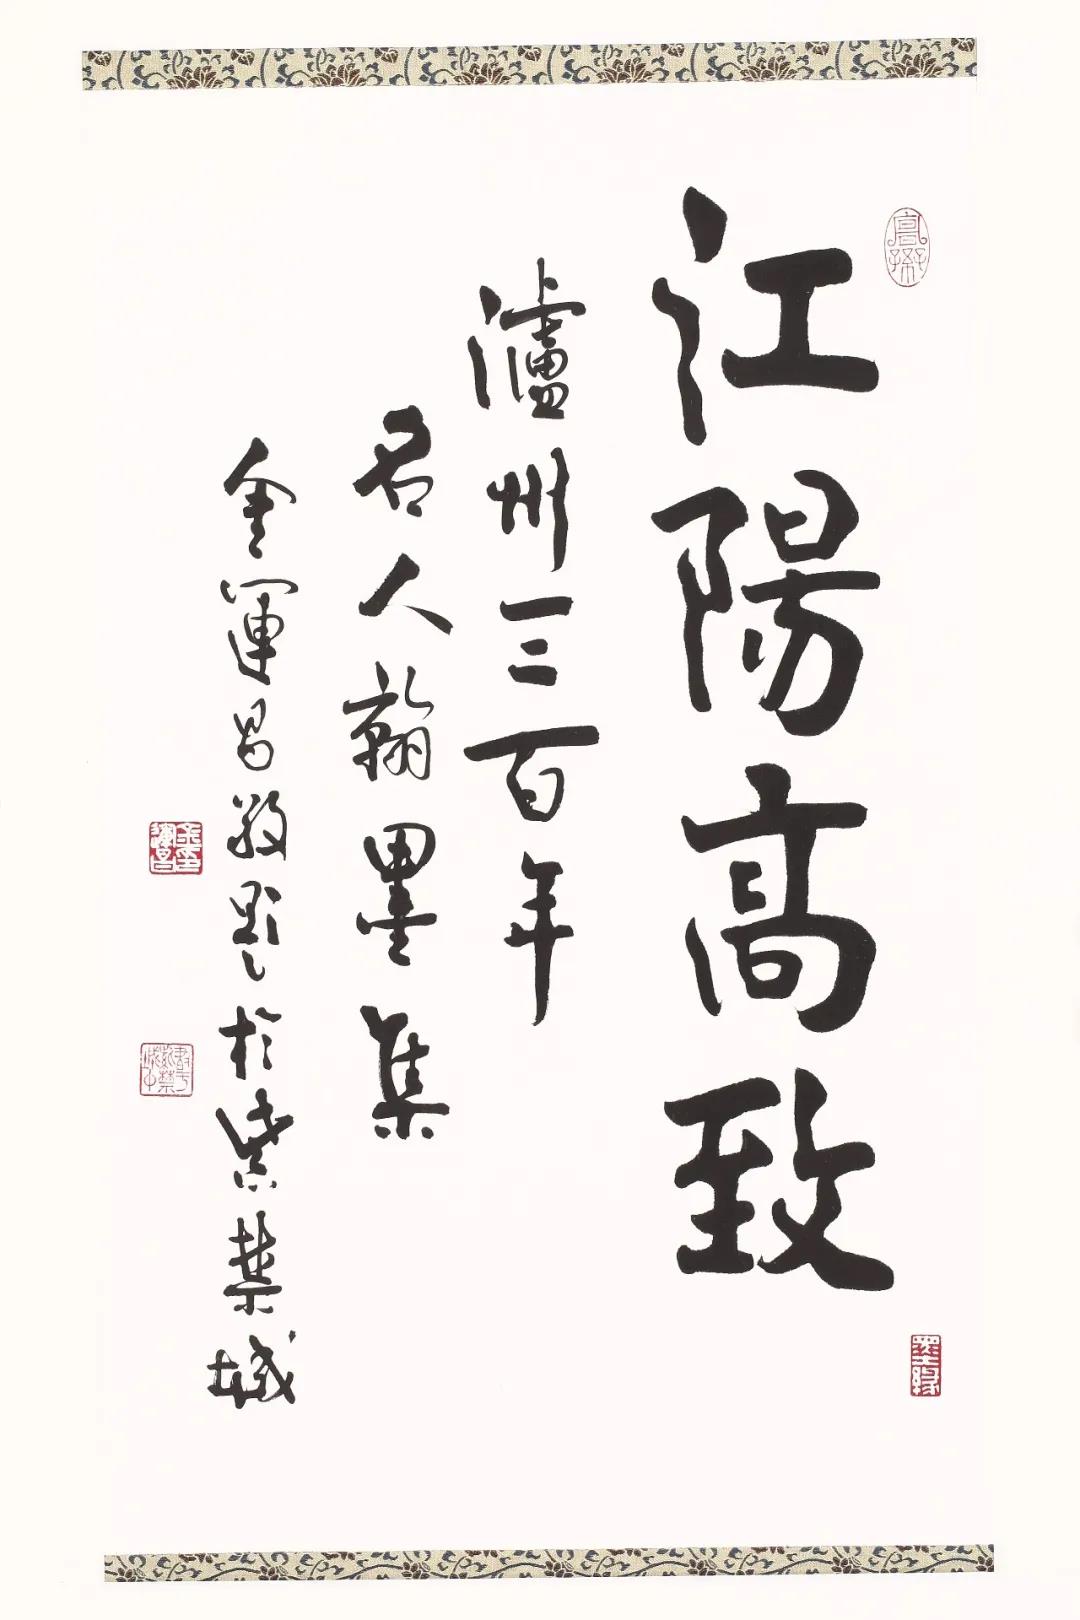 江陽高致
瀘州三百年
名人翰墨集
金運昌敬題於紫禁城
墨緣